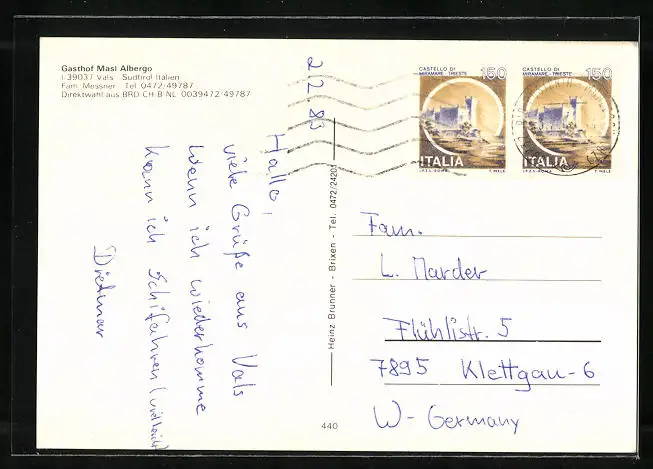 Gasthof Masl Albergo
I 39037 Vals Südtirol Italien
Fam. Messner Tel 0472/49787
Direktwahl aus BRD-CH-B-NL 0039472/49787
2.2.83
Hallo,
viele Grüße aus Vals
Wenn ich wiederkomme
kann ich Schifahren (vielleicht
Dietmar
Heinz Brunner - Brixen - Tel. 0472/24201
440
CASTELLO DI
MIRAMARE - TRIESTE
150
ITALIA
I.P.Z.S.-ROMA T. MELE
CASTELLO DI
MIRAMARE - TRIESTE
150
ITALIA
I.P.Z.S.-ROMA T. MELE
Fam.
L. Marder
Flühlistr. 5
7895 Klettgau-6
W-Germany